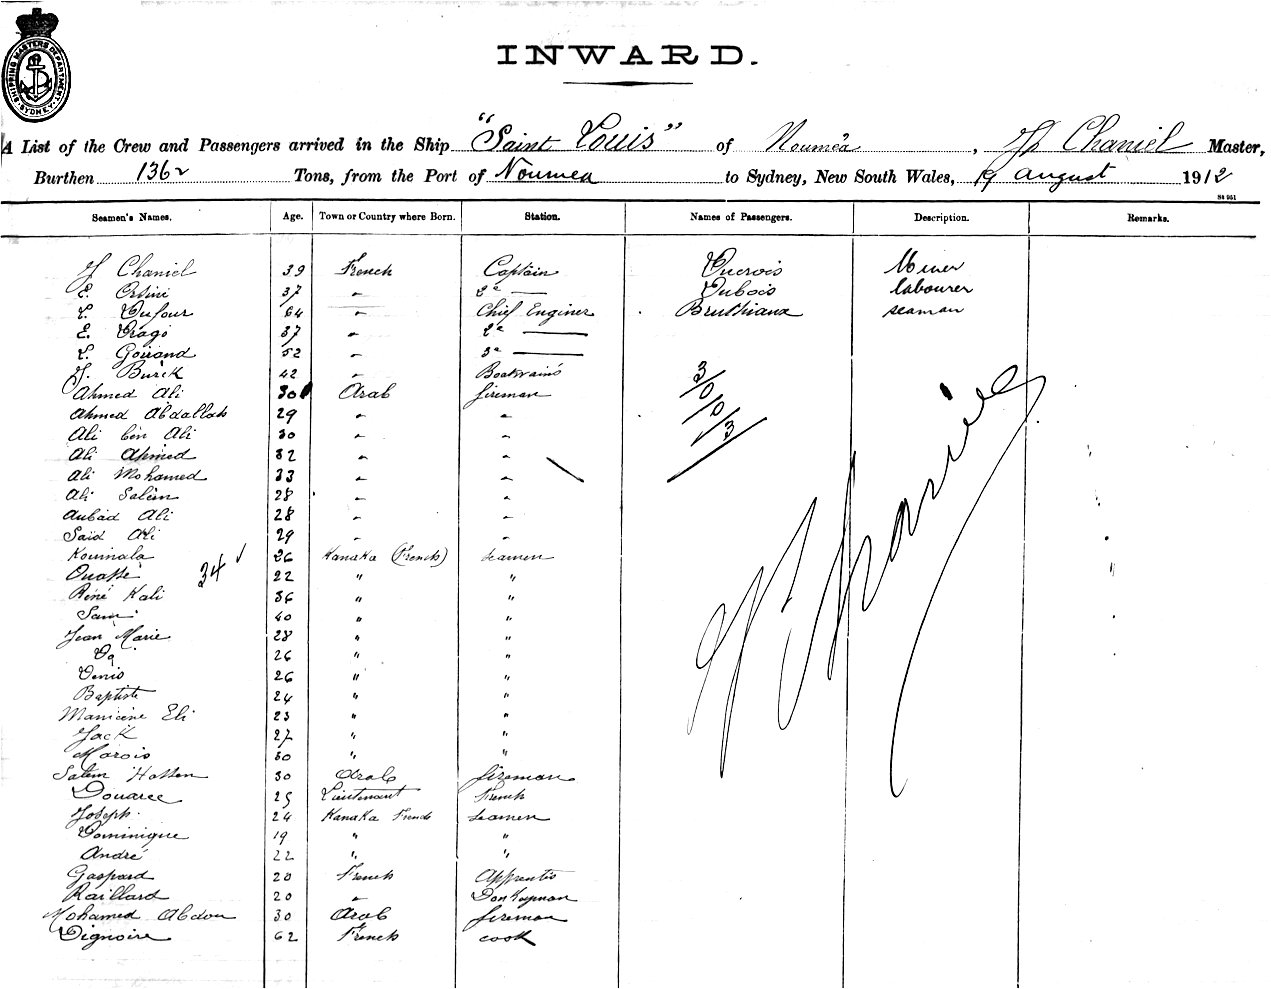 SHIPPING MASTERS DEPARTMENT SYDNEY
INWARD.
A List of the Crew and Passengers arrived in the Ship "Saint Louis" of Nouméa, Chaniel Master,
Burthen 1362 Tons, from the Port of Noumea to Sydney, New South Wales, 19 august 1912
S4 951
Seamen's Names. Age. Town or Country where Born. Station. Names of Passengers. Description. Remarks.
J Chaniel 39 French Captain Ducrois Miner
E. Orsini 37 " 2d — Dubois labourer
L. Dufour 64 " Chief Enginer Bruthiana seaman
E. Drago 37 " 2d —
L. Goirand 52 " 3d —
J. Burck 42 " Boatwain's
Ahmed Ali 30 Arab fireman
Ahmed Abdallah 29 " "
Ali ben Ali 30 " "
Ali Ahmed 32 " "
Ali Mohamed 33 " "
Ali Salem 28 " "
Aubad Ali 28 " "
Said Ali 29 " "
3/0/0/3
Koumala 26 Kanaka (French) seamen
34 ✓
Ouassé 22 " "
René Kali 36 " "
Sam 40 " "
Jean Marie 28 " "
26 " "
Denis 26 " "
Baptiste 24 " "
Manicine Eli 23 " "
Jack 27 " "
Marois 30 " "
Salem Hassen 30 Arab fireman
Douaree 25 Lieutenant French
Joseph 24 Kanaka French seamen
Dominique 19 " "
André 22 " "
Gaspard 20 French Apprentis
Raillard 20 " Donkeyman
Mohamed Abdou 30 Arab fireman
Dignoire 62 French cook
J Chaniel